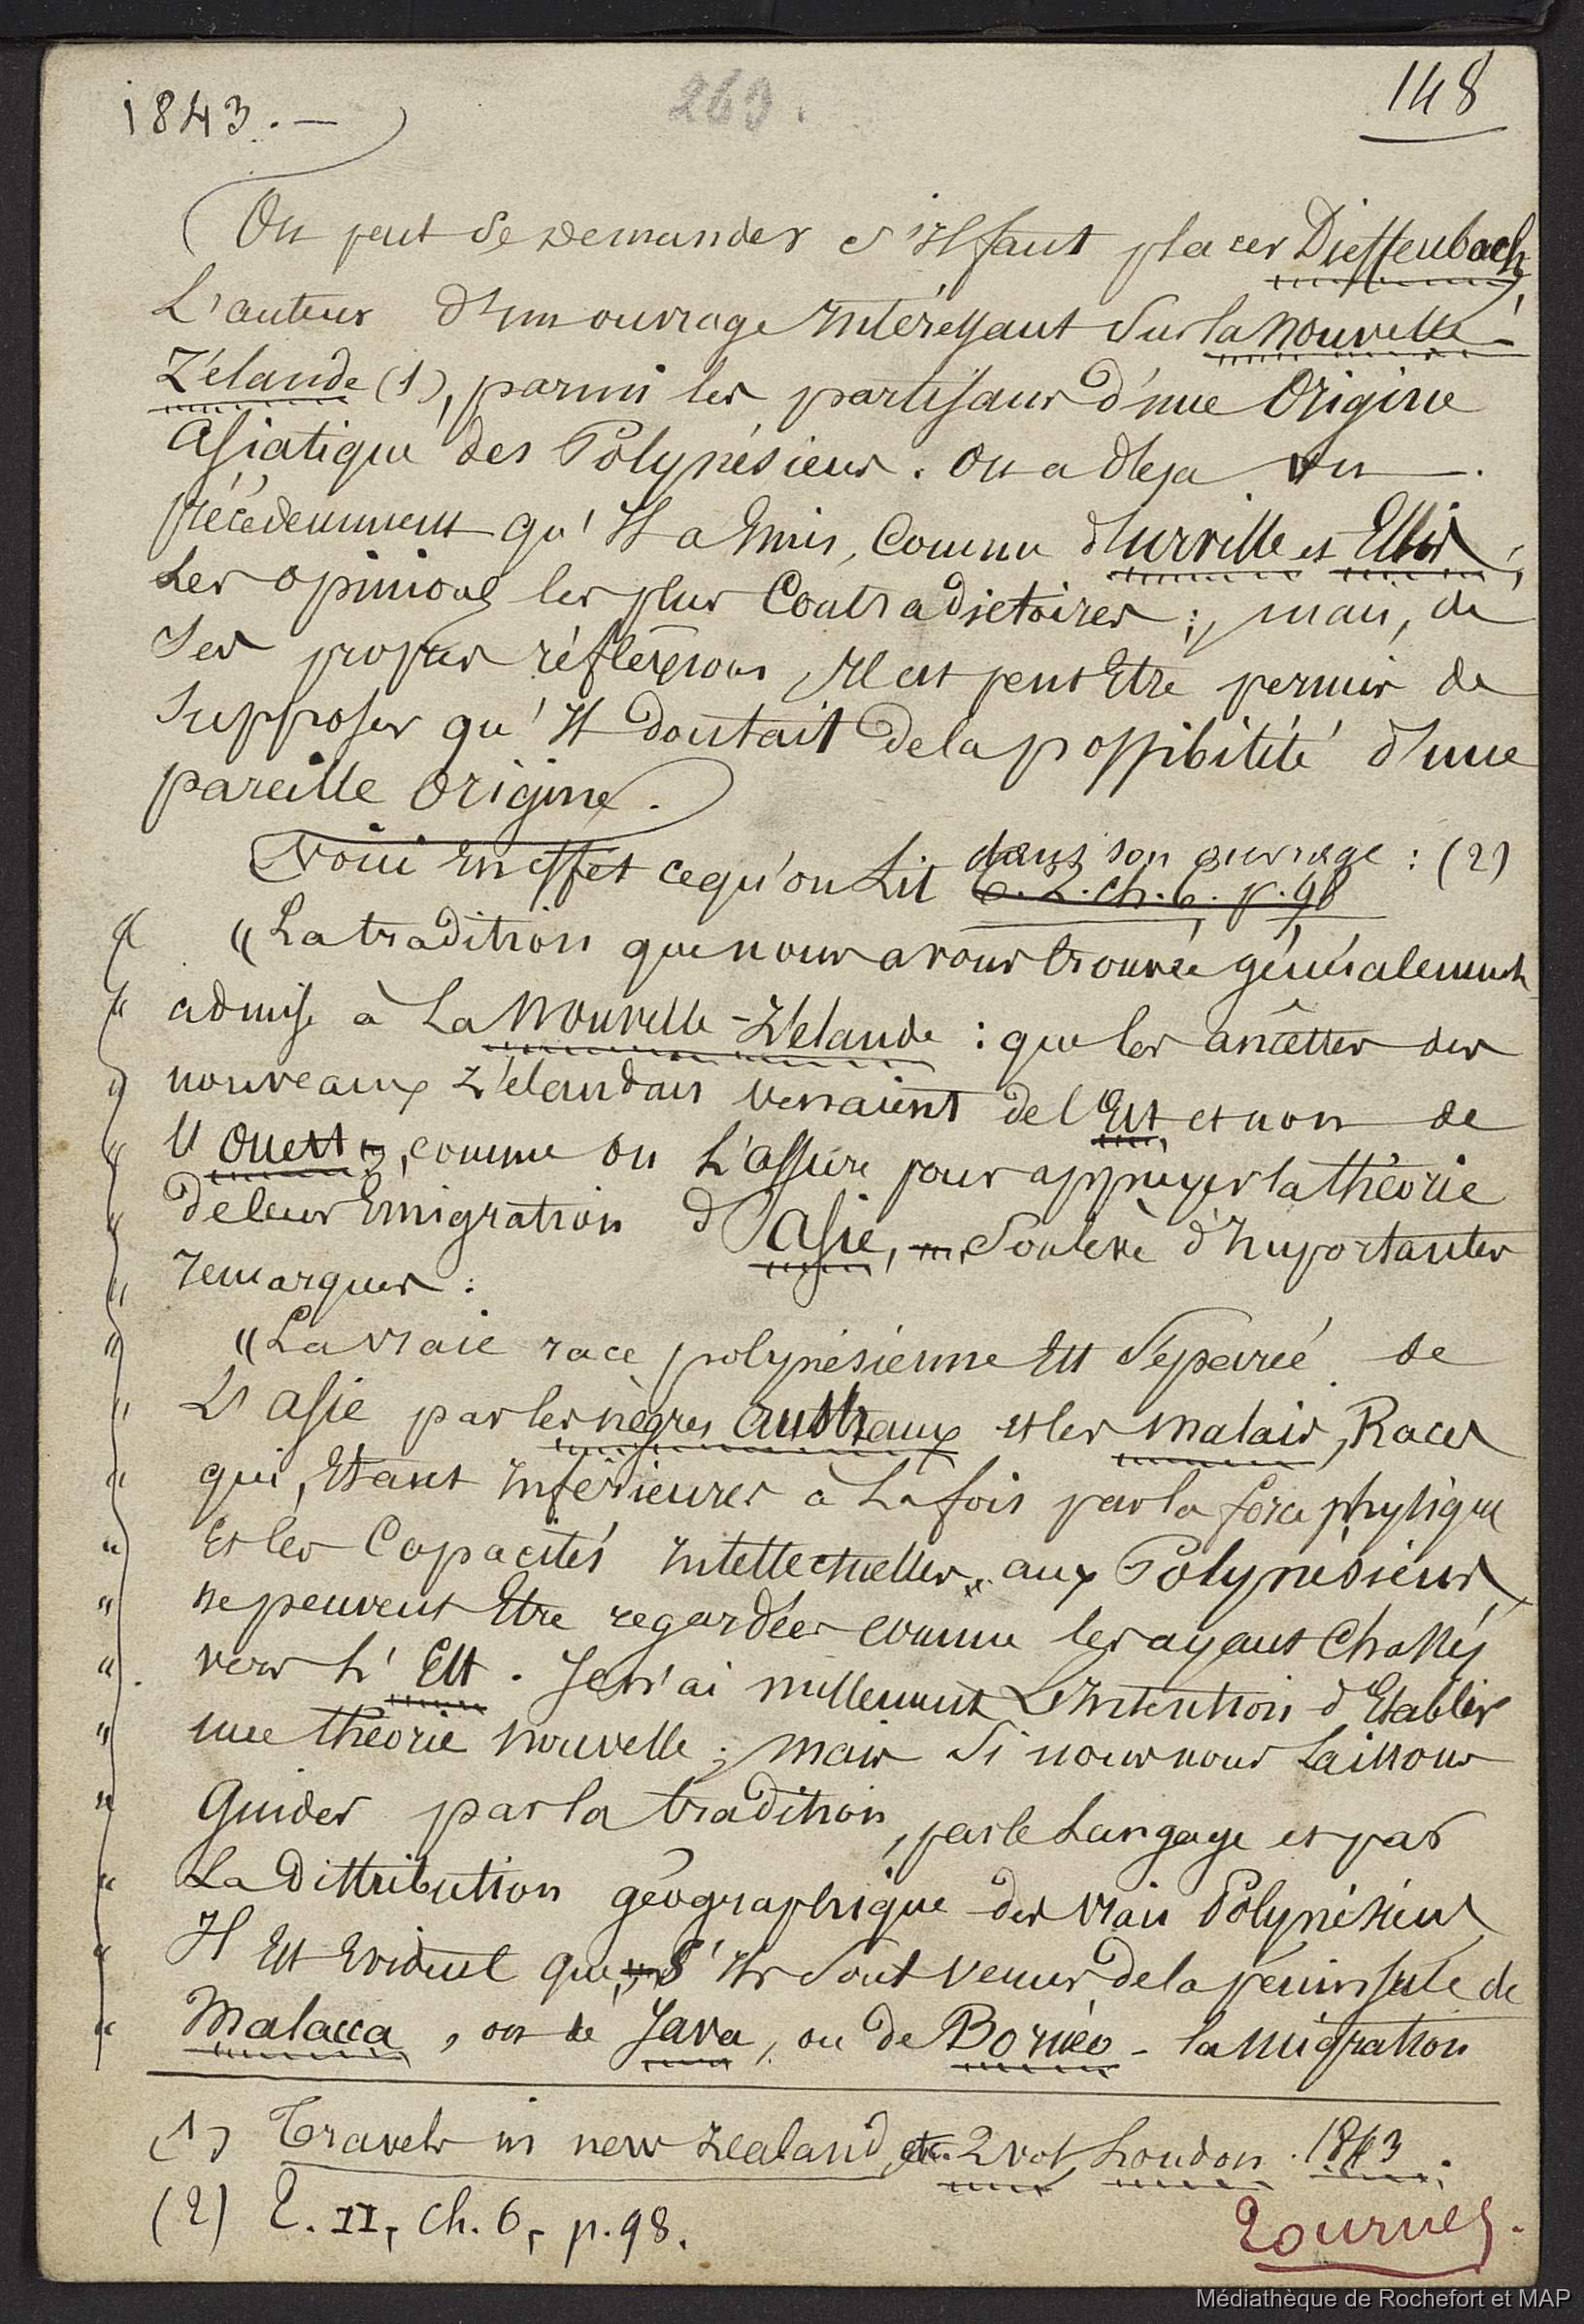 1843. —
269.
148
On peut se demander s'il faut placer Dieffenbach,
L'auteur d'un ouvrage intéressant sur la Nouvelle-
Zélande (1), parmi les partisans d'une Origine
asiatique des Polynésiens. On a déja vu
précédemment qu'il a émis, comme d'Urville et Ellis,
les opinions les plus contradictoires; mais, de
ses propres réflexions, il est peut être permis de
supposer qu'il doutait de la possibilité d'une
pareille origine.
Voici en effet ce qu'on lit dans son ouvrage : (2)
t. 2. ch. 6. p. 98
"La tradition que nous avons trouvée généralement
admise à la Nouvelle-Zélande : que les ancêtres des
nouveaux Zélandais venaient de l'Est et non de
l'Ouest, comme on l'assure pour appuyer la théorie
de leur émigration d'Asie, soulève d'importantes
remarques :
"La vraie race polynésienne est séparée de
L'asie par les nègres austraux et les malais, Races
qui, étant inférieures à la fois par la force physique
et les capacités intellectuelles aux Polynésiens,
ne peuvent être regardées comme les ayant chassés
vers l'Est. Je n'ai nullement l'intention d'établir
une théorie nouvelle ; mais si nous nous laissons
guider par la tradition, par le langage et par
la distribution géographique des vrais Polynésiens,
il est évident que, s'ils sont venus de la péninsule de
Malacca, ou de Java, ou de Bornéo - la migration
(1) Travels in new Zealand, etc. 2 vol. London. 1843.
(2) T. II, ch. 6, p. 98.
Tournez.
Médiathèque de Rochefort et MAP